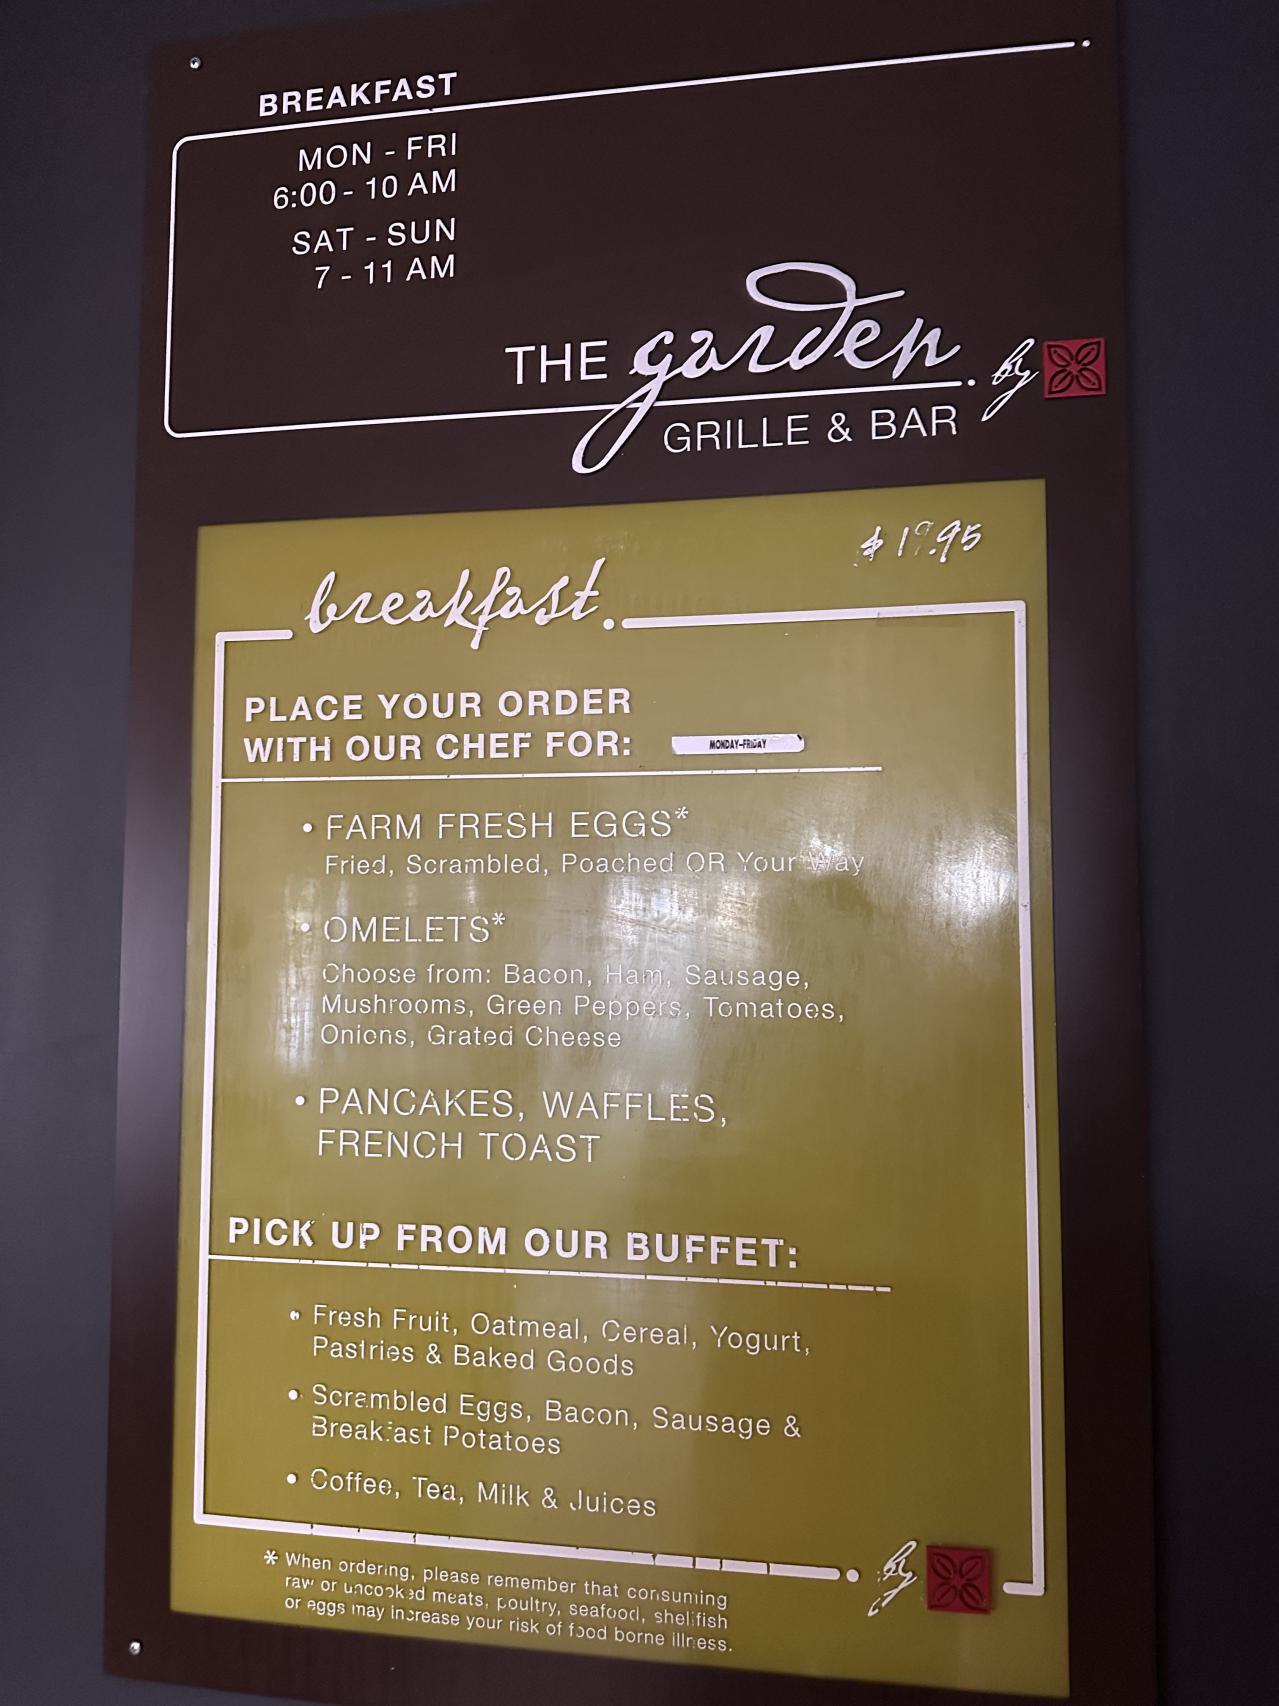 BREAKFAST
MON - FRI
6:00 - 10 AM
SAT - SUN
7 - 11 AM
THE garden. by
GRILLE & BAR
$19.95
breakfast.
PLACE YOUR ORDER
WITH OUR CHEF FOR: MONDAY-FRIDAY
• FARM FRESH EGGS*
Fried, Scrambled, Poached OR Your Way
• OMELETS*
Choose from: Bacon, Ham, Sausage,
Mushrooms, Green Peppers, Tomatoes,
Onions, Grated Cheese
• PANCAKES, WAFFLES,
FRENCH TOAST
PICK UP FROM OUR BUFFET:
• Fresh Fruit, Oatmeal, Cereal, Yogurt,
Pastries & Baked Goods
• Scrambled Eggs, Bacon, Sausage &
Breakfast Potatoes
• Coffee, Tea, Milk & Juices
by
* When ordering, please remember that consuming
raw or uncooked meats, poultry, seafood, shellfish
or eggs may increase your risk of food borne illness.